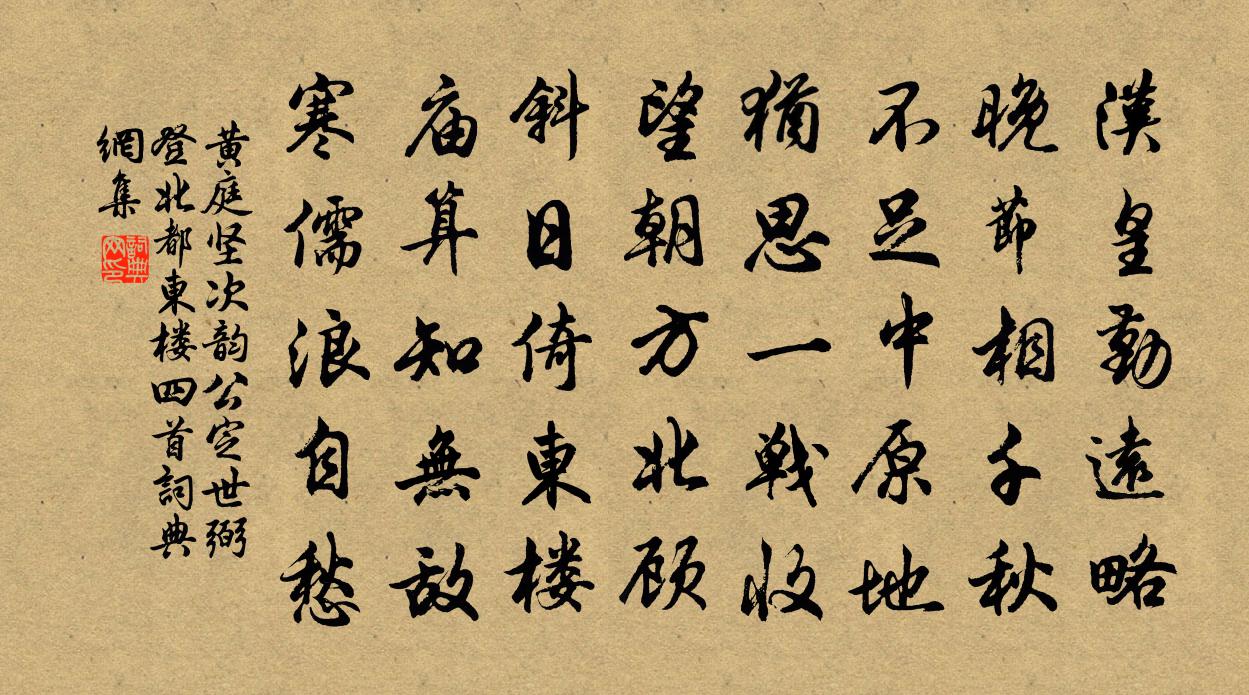 漢皇勤遠略
晚節相千秋
不足中原地
猶思一戦收
望朝方北顾
斜日倚東楼
庙算知無敌
寒儒浪自愁
黃庭坚次韵公定世弼
登北都東楼四首詞典
網集
詞典网印